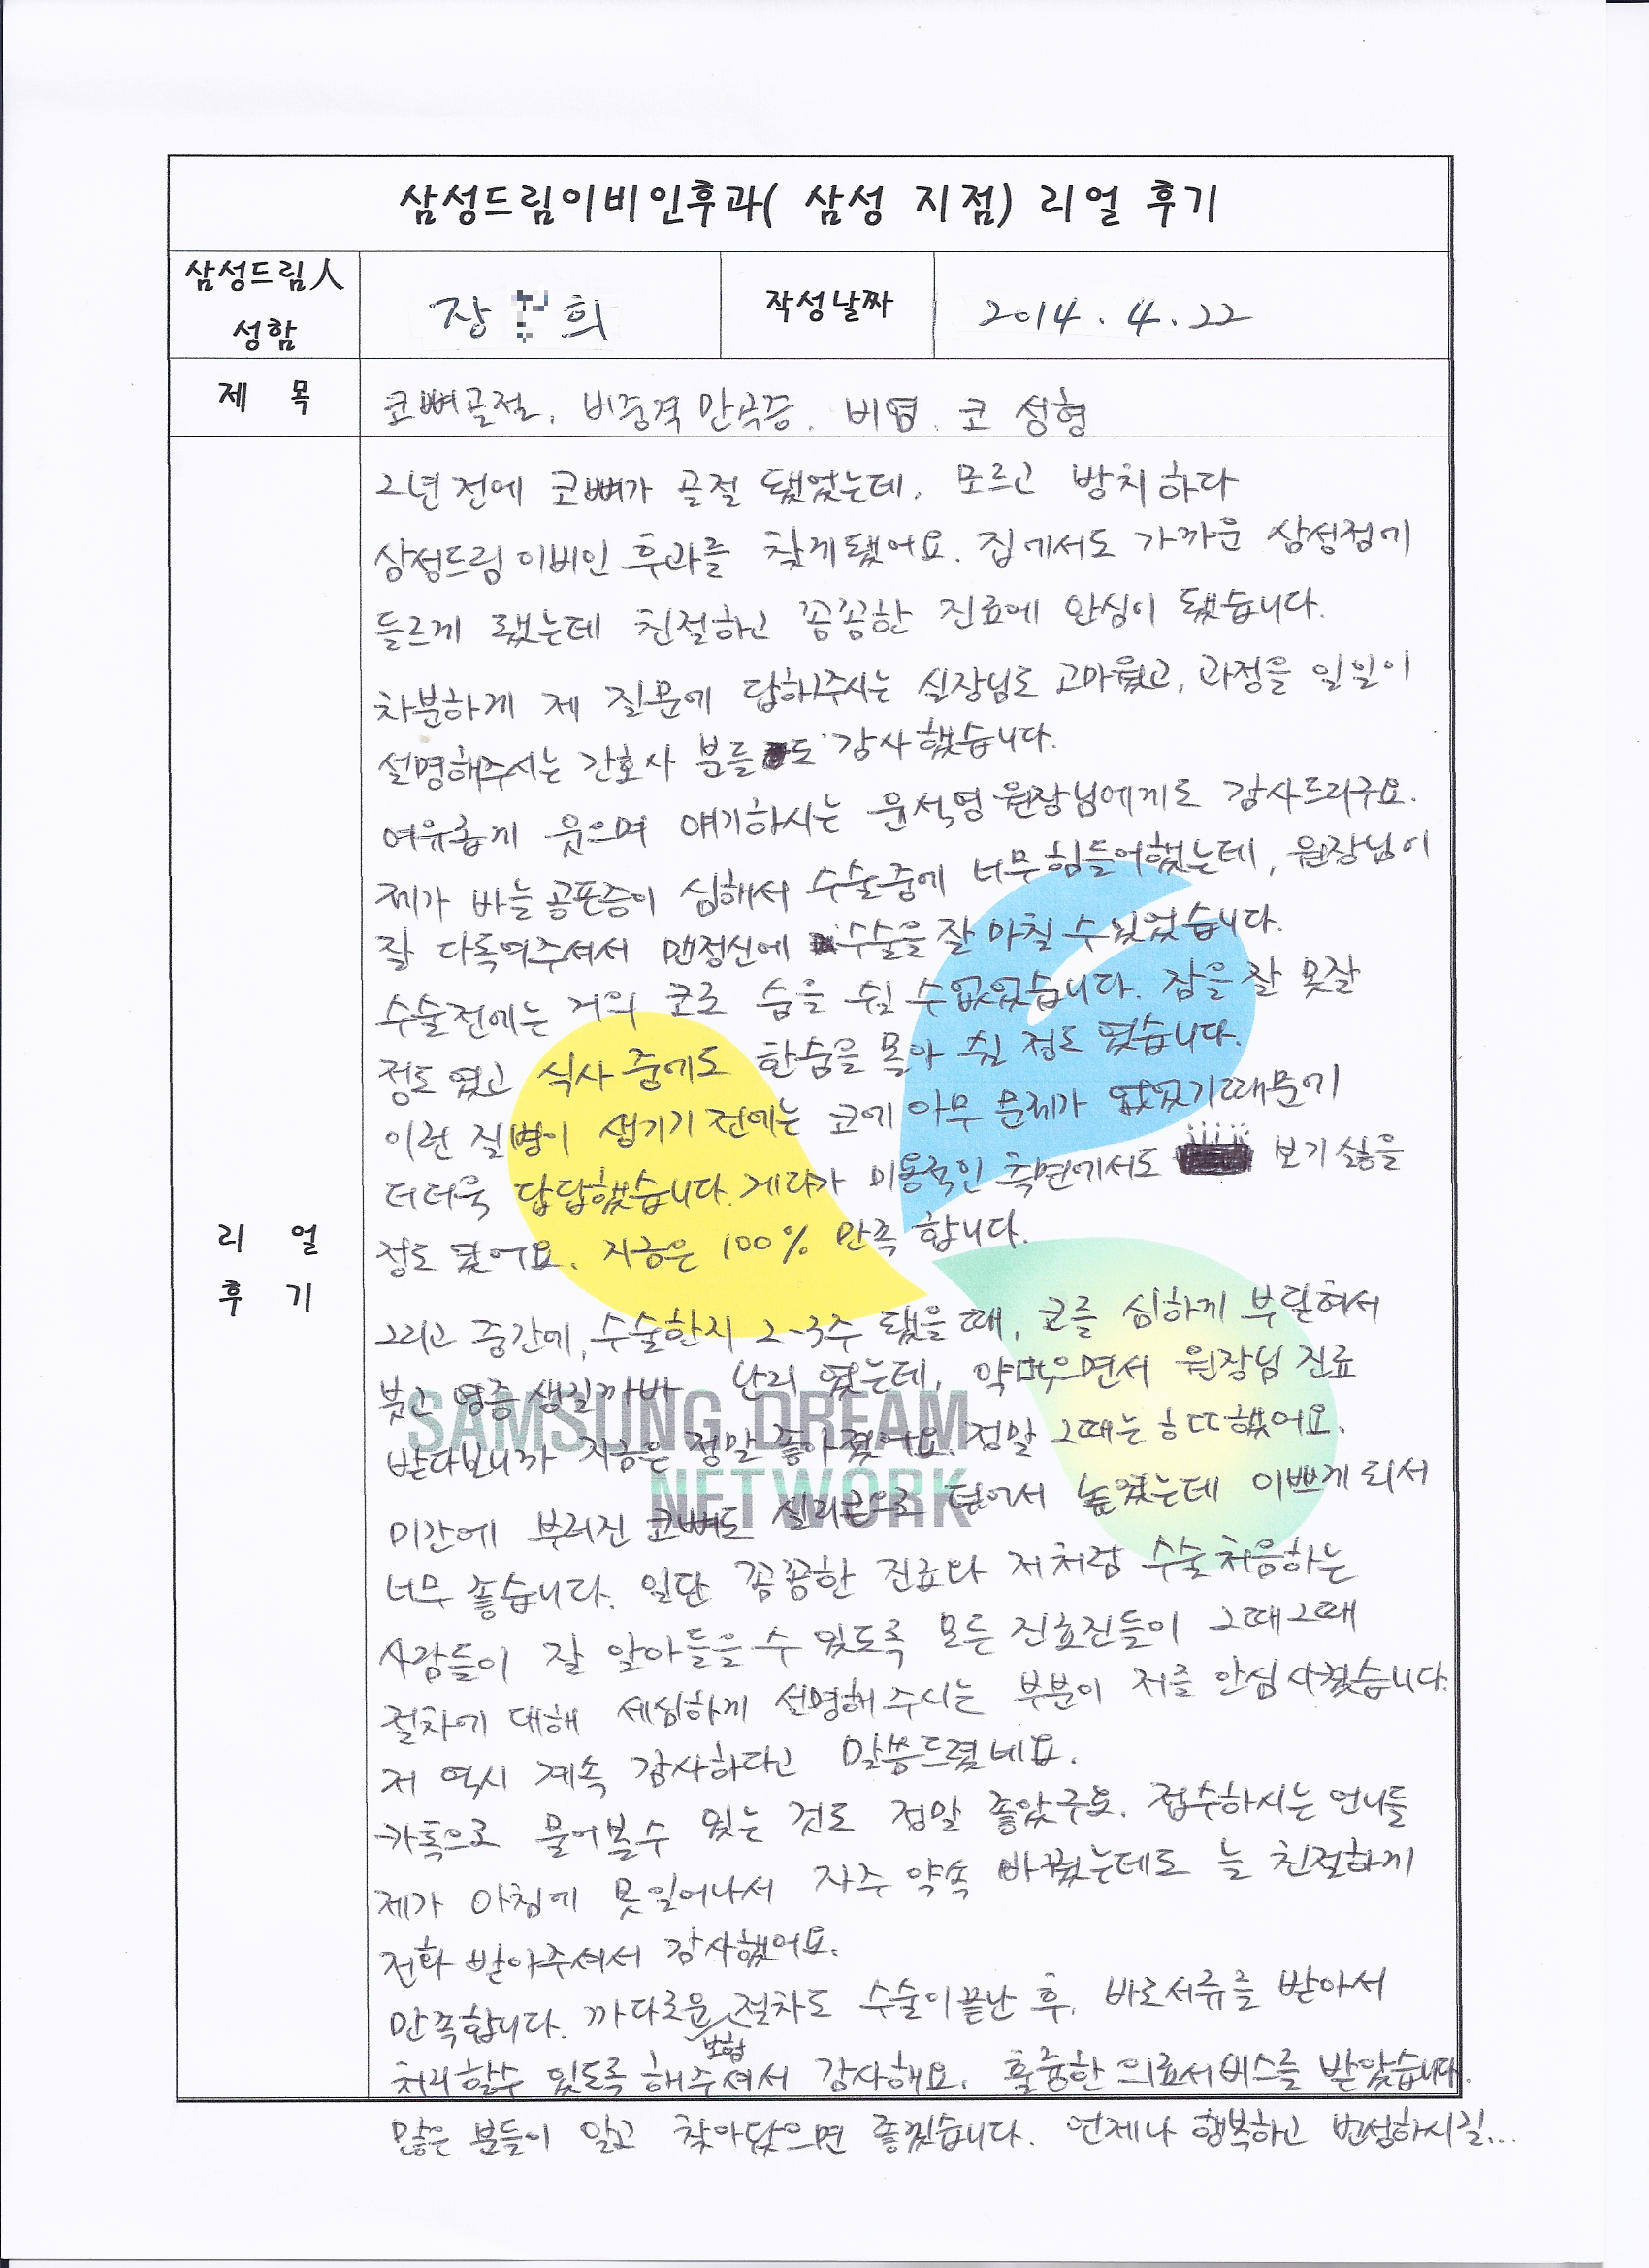 삼성드림이비인후과( 삼성 지점) 리얼 후기
삼성드림人
성함
장 희
작성날짜
2014. 4. 22
제 목
코뼈골절, 비중격 만곡증, 비염, 코 성형
리 얼
후 기
2년 전에 코뼈가 골절 됐었는데, 모르고 방치하다
삼성드림이비인후과를 찾게됐어요. 집에서도 가까운 삼성점에
들르게 됐는데 친절하고 꼼꼼한 진료에 안심이 됐습니다.
차분하게 제 질문에 답해주시는 실장님도 고마웠고, 과정을 일일이
설명해주시는 간호사 분들도 감사했습니다.
여유롭게 웃으며 얘기하시는 윤석영 원장님에게도 감사드리구요.
제가 바늘공포증이 심해서 수술중에 너무힘들어했는데, 원장님이
잘 다독여주셔서 맨정신에 수술을 잘 마칠 수있었습니다.
수술전에는 거의 코로 숨을 쉴 수없었습니다. 잠을 잘 못잘
정도 였고 식사 중에도 한숨을 몰아 쉴 정도 였습니다.
이런 질병이 생기기 전에는 코에 아무 문제가 없었기때문에
더더욱 답답했습니다. 게다가 미용적인 측면에서도 보기 싫을
정도 였어요. 지금은 100% 만족 합니다.
그리고 중간에, 수술한지 2-3주 됐을 때, 코를 심하게 부딪혀서
붓고 염증 생길까바 난리 였는데, 약먹으면서 원장님 진료
받다보니까 지금은 정말 좋아졌어요. 정말 그때는 ㅎㄷㄷ했어요.
미간에 부러진 코뼈도 실리콘으로 덮어서 높였는데 이쁘게 되서
너무 좋습니다. 일단 꼼꼼한 진료와 저처럼 수술 처음하는
사람들이 잘 알아들을 수 있도록 모든 진료진들이 그때그때
절차에 대해 세심하게 설명해 주시는 부분이 저를 안심 시켰습니다.
저 역시 계속 감사하다고 말씀드렸네요.
카톡으로 물어볼수 있는 것도 정말 좋았구요. 접수하시는 언니들
제가 아침에 못일어나서 자주 약속 바꿨는데도 늘 친절하게
전화 받아주셔서 감사했어요.
만족합니다. 까다로운 보험 절차도 수술이 끝난 후, 바로서류를 받아서
처리할수 있도록 해주셔서 감사해요. 훌륭한 의료서비스를 받았습니다.
많은 분들이 알고 찾아왔으면 좋겠습니다. 언제나 행복하고 번성하시길...
SAMSUNG DREAM
NETWORK